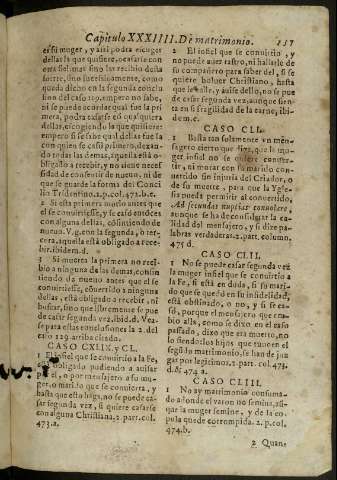 Capitulo XXXIIII. De matrimonio. 157
es su muger, y assi podra escoger
dellas la que quisiere, o casarse con
otra
si no las recibio desta
suerte, sino sucessiuamente, como
queda dicho en la segunda conclu
sion del caso 129. empero no sabe,
ni se puede acordar qual fue la pri
mera, podra casarse con qualquiera
dellas, escogiendo la que quisiere:
empero si se sabe qual fue la prime
ra con quien se casò primero, dexan
do todas las demas, a aquella està o-
bligado a recebir, y no tiene necesi
dad de consentir de nueuo, ni de
que se guarde la forma del Conci
lio Tridentino. 2. p. col. 472. b. c.
2 Si esta primera muriò antes que
el se conuirtiesse, y se casò entōces
con alguna dellas, cōsintiendo de
nueuo, V. g. con la segunda, o ter-
cera, a aquella està obligado a rece-
bir. ibidem. d.
3 Si muerta la primera no reci-
bio a ninguna de las demas, consin
tiendo de nueuo antes que el se
conuirtiesse, o conuertido a ninguna
dellas, està obligado a recebir, ni
buscar, sino que libremente se pue
de casar segunda vez. ibid. d. Vea-
se para estas conclusiones la 2. del
caso 129. arriba citado.
CASO CXLIX. y CL.
1 El infiel que se conuirtio a la Fe,
es obligado pudiendo a auisar
por si, o por mensajero a su mu-
ger, o marido que se conuierta, y
hasta que esto haga, no se puede ca-
sar segunda vez, si quiere casarse
con alguna Christiana. 2. part. col.
473. a.
2 El infiel que se conuirtio, y
no puede auer rastro, ni hallarle de
su compañero para saber del, si se
quiere boluer Christiano, hasta
que le halle, y auise dello, no se pue
de casar segunda vez, aunque sien-
ta en si fragilidad de la carne, ibi-
dem. c.
CASO CLI.
1 Basta tan solamente vn men-
sagero cierto que diga, que la mu-
ger infiel no se quiere conuer-
tir, ni morar con su marido conuer
tido sin injuria del Criador, o
de su muerte, para que la Ygle-
sia pueda permitir al conuertido,
Ad secundas nuptias conuolare,
aunque se ha de consultar la ca-
lidad del mensajero, y si dize pa-
labras verdaderas. 2. part. column.
475. d.
CASO CLII.
1 No se puede casar segunda vez
la muger infiel que se conuirtio a
la Fe, si està en duda, si su mari-
do que se quedò en su infidelidad,
està obstinado, o no, y si se ca-
sò, porque el mensajero que em-
biò allà, como se dixo en el caso
passado, dixo que era muerto, no
lo siendo los hijos que tuuo en el
segūdo matrimonio, se han de juz
gar por legitimos. 2. part. col. 473.
d. & 474. a.
CASO CLIII.
1 No ay matrimonio consuma-
do adonde el varon no semina, assi
que la muger semine, y de la co-
pula quede corrompida. 2. p. col.
474. b.
2 Quan-